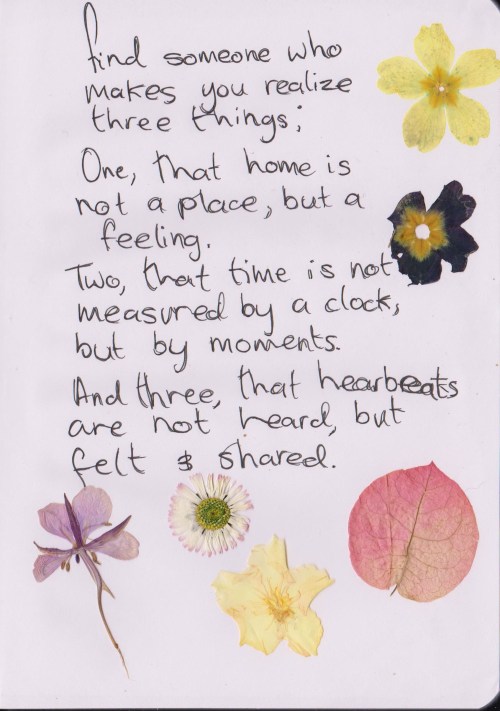 find someone who
makes you realize
three things;
One, that home is
not a place, but a
feeling.
Two, that time is not
measured by a clock,
but by moments.
And three, that hearbeats
are not heard, but
felt & shared.